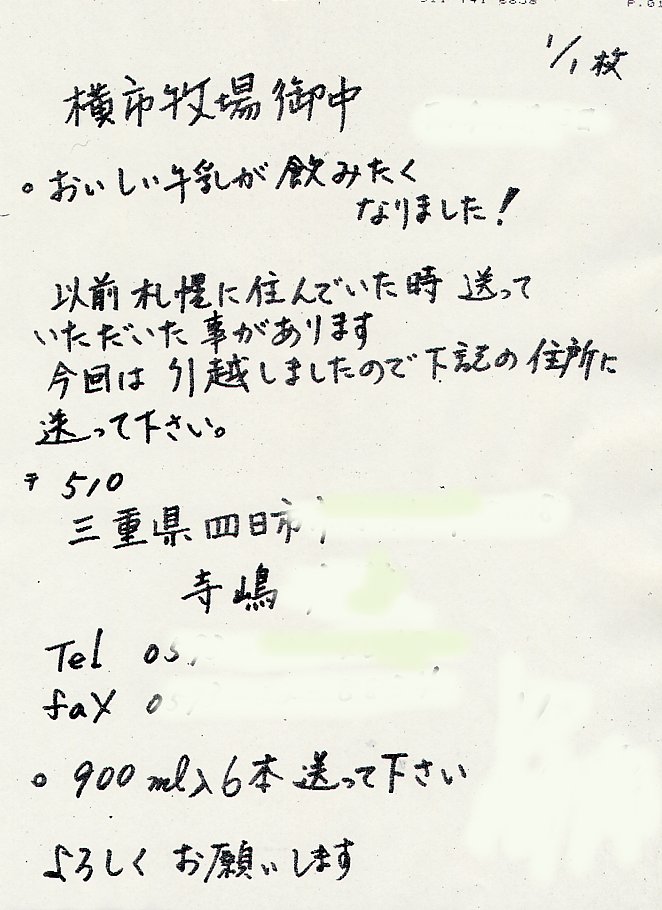 1/1枚
横市牧場御中
○ おいしい牛乳が飲みたく
なりました!
以前札幌に住んでいた時 送って
いただいた事があります
今回は引越しましたので下記の住所に
送って下さい。
〒510
三重県四日市
寺嶋
Tel 05
fax 0
○ 900ml入6本 送って下さい
よろしく お願いします